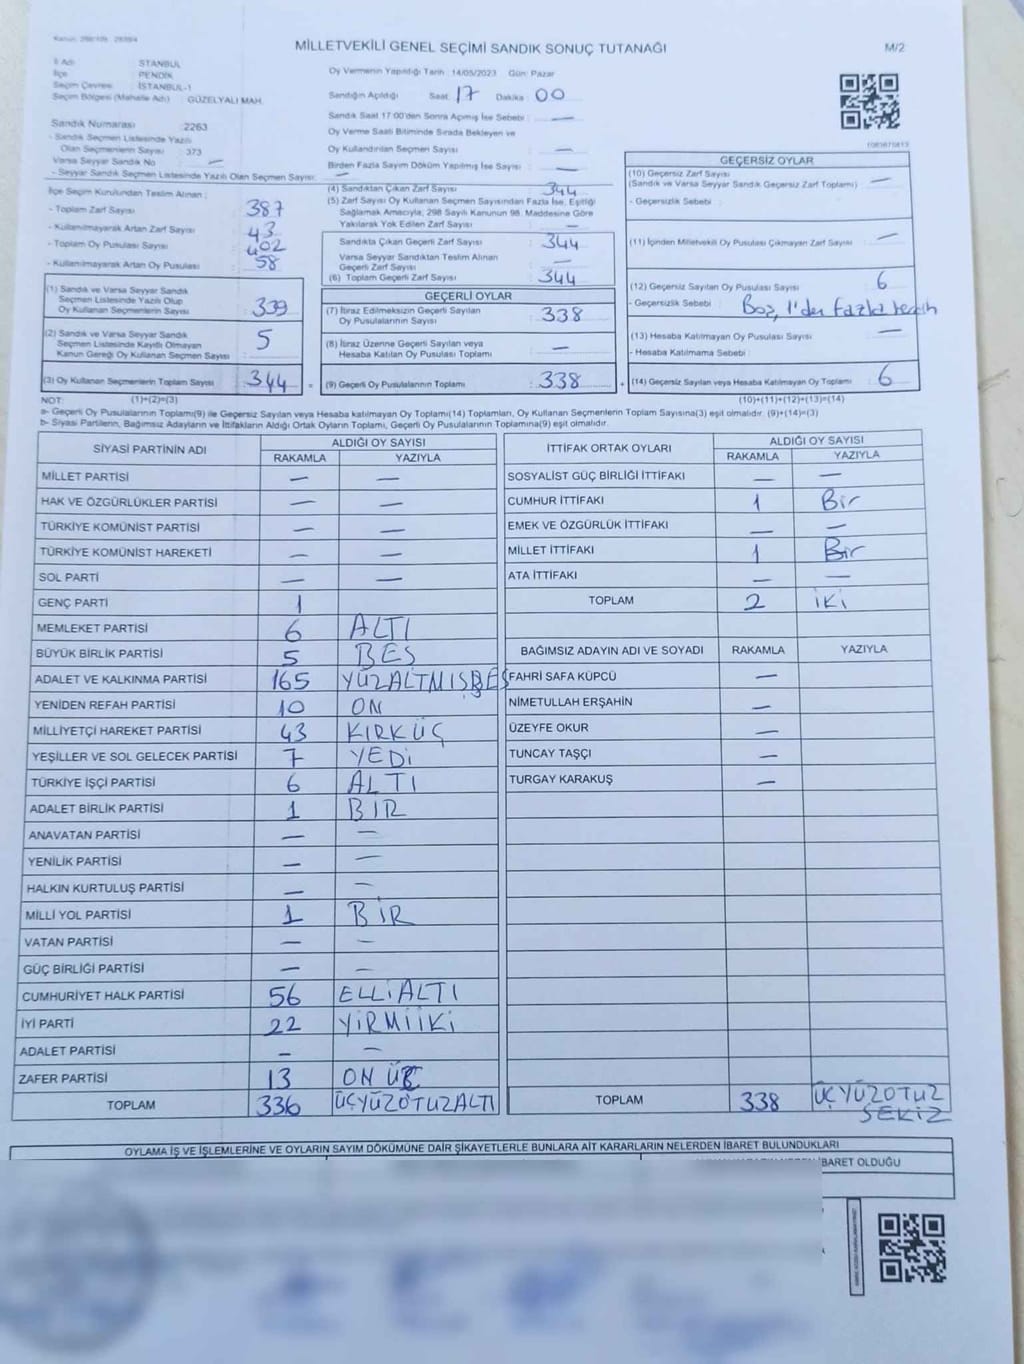 MİLLETVEKİLİ GENEL SEÇİMİ SANDIK SONUÇ TUTANAĞI
M/2
İl Adı : İSTANBUL
İlçe : PENDİK
Seçim Çevresi : İSTANBUL-1
Seçim Bölgesi (Mahalle Adı) : GÜZELYALI MAH.
Sandık Numarası : 2263
- Sandık Seçmen Listesinde Yazılı
Olan Seçmenlerin Sayısı : 373
Varsa Seyyar Sandık No —
- Seyyar Sandık Seçmen Listesinde Yazılı Olan Seçmen Sayısı: —
Oy Vermenin Yapıldığı Tarih : 14/05/2023 Gün: Pazar
Sandığın Açıldığı Saat: 17 Dakika : 00
Sandık Saat 17:00'den Sonra Açılmış İse Sebebi : —
Oy Verme Saati Bitiminde Sırada Bekleyen ve
Oy Kullandırılan Seçmen Sayısı : —
Birden Fazla Sayım Döküm Yapılmış İse Sayısı : —
İlçe Seçim Kurulundan Teslim Alınan :
- Toplam Zarf Sayısı : 387
- Kullanılmayarak Artan Zarf Sayısı : 43
- Toplam Oy Pusulası Sayısı : 402
- Kullanılmayarak Artan Oy Pusulası : 58
(1) Sandık ve Varsa Seyyar Sandık
Seçmen Listesinde Yazılı Olup
Oy Kullanan Seçmenlerin Sayısı : 339
(2) Sandık ve Varsa Seyyar Sandık
Seçmen Listesinde Kayıtlı Olmayan
Kanun Gereği Oy Kullanan Seçmen Sayısı : 5
(3) Oy Kullanan Seçmenlerin Toplam Sayısı : 344
(4) Sandıktan Çıkan Zarf Sayısı : 344
(5) Zarf Sayısı Oy Kullanan Seçmen Sayısından Fazla İse, Eşitliği
Sağlamak Amacıyla, 298 Sayılı Kanunun 98. Maddesine Göre
Yakılarak Yok Edilen Zarf Sayısı : —
Sandıkta Çıkan Geçerli Zarf Sayısı : 344
Varsa Seyyar Sandıktan Teslim Alınan
Geçerli Zarf Sayısı : —
(6) Toplam Geçerli Zarf Sayısı : 344
GEÇERLİ OYLAR
(7) İtiraz Edilmeksizin Geçerli Sayılan
Oy Pusulalarının Sayısı : 338
(8) İtiraz Üzerine Geçerli Sayılan veya
Hesaba Katılan Oy Pusulası Toplamı : —
= (9) Geçerli Oy Pusulalarının Toplamı : 338
GEÇERSİZ OYLAR
(10) Geçersiz Zarf Sayısı
(Sandık ve Varsa Seyyar Sandık Geçersiz Zarf Toplamı) : —
- Geçersizlik Sebebi :
(11) İçinden Milletvekili Oy Pusulası Çıkmayan Zarf Sayısı : —
(12) Geçersiz Sayılan Oy Pusulası Sayısı : 6
- Geçersizlik Sebebi : Boş, 1'den fazla tercih
(13) Hesaba Katılmayan Oy Pusulası Sayısı : —
- Hesaba Katılmama Sebebi :
+ (14) Geçersiz Sayılan veya Hesaba Katılmayan Oy Toplamı : 6
NOT: (1)+(2)=(3) (10)+(11)+(12)+(13)=(14)
a- Geçerli Oy Pusulalarının Toplamı(9) ile Geçersiz Sayılan veya Hesaba katılmayan Oy Toplamı(14) Toplamları, Oy Kullanan Seçmenlerin Toplam Sayısına(3) eşit olmalıdır. (9)+(14)=(3)
b- Siyasi Partilerin, Bağımsız Adayların ve İttifakların Aldığı Ortak Oyların Toplamı, Geçerli Oy Pusulalarının Toplamına(9) eşit olmalıdır.
SİYASİ PARTİNİN ADI ALDIĞI OY SAYISI
RAKAMLA YAZIYLA
MİLLET PARTİSİ — —
HAK VE ÖZGÜRLÜKLER PARTİSİ — —
TÜRKİYE KOMÜNİST PARTİSİ — —
TÜRKİYE KOMÜNİST HAREKETİ — —
SOL PARTİ — —
GENÇ PARTİ 1
MEMLEKET PARTİSİ 6 ALTI
BÜYÜK BİRLİK PARTİSİ 5 BES
ADALET VE KALKINMA PARTİSİ 165 YÜZALTMIŞBEŞ
YENİDEN REFAH PARTİSİ 10 ON
MİLLİYETÇİ HAREKET PARTİSİ 43 KIRKÜÇ
YEŞİLLER VE SOL GELECEK PARTİSİ 7 YEDİ
TÜRKİYE İŞÇİ PARTİSİ 6 ALTI
ADALET BİRLİK PARTİSİ 1 BIR
ANAVATAN PARTİSİ — —
YENİLİK PARTİSİ — —
HALKIN KURTULUŞ PARTİSİ — —
MİLLİ YOL PARTİSİ 1 BİR
VATAN PARTİSİ — —
GÜÇ BİRLİĞİ PARTİSİ — —
CUMHURİYET HALK PARTİSİ 56 ELLİALTI
İYİ PARTİ 22 YİRMİİKİ
ADALET PARTİSİ — —
ZAFER PARTİSİ 13 ON ÜÇ
TOPLAM 336 ÜÇYÜZOTUZALTI
İTTİFAK ORTAK OYLARI ALDIĞI OY SAYISI
RAKAMLA YAZIYLA
SOSYALİST GÜÇ BİRLİĞİ İTTİFAKI — —
CUMHUR İTTİFAKI 1 Bir
EMEK VE ÖZGÜRLÜK İTTİFAKI — —
MİLLET İTTİFAKI 1 Bir
ATA İTTİFAKI — —
TOPLAM 2 İKİ
BAĞIMSIZ ADAYIN ADI VE SOYADI RAKAMLA YAZIYLA
FAHRİ SAFA KÜPCÜ —
NİMETULLAH ERŞAHİN —
ÜZEYFE OKUR —
TUNCAY TAŞÇI —
TURGAY KARAKUŞ —
TOPLAM 338 ÜÇYÜZOTUZ
SEKİZ
OYLAMA İŞ VE İŞLEMLERİNE VE OYLARIN SAYIM DÖKÜMÜNE DAİR ŞİKAYETLERLE BUNLARA AİT KARARLARIN NELERDEN İBARET BULUNDUKLARI
İBARET OLDUĞU